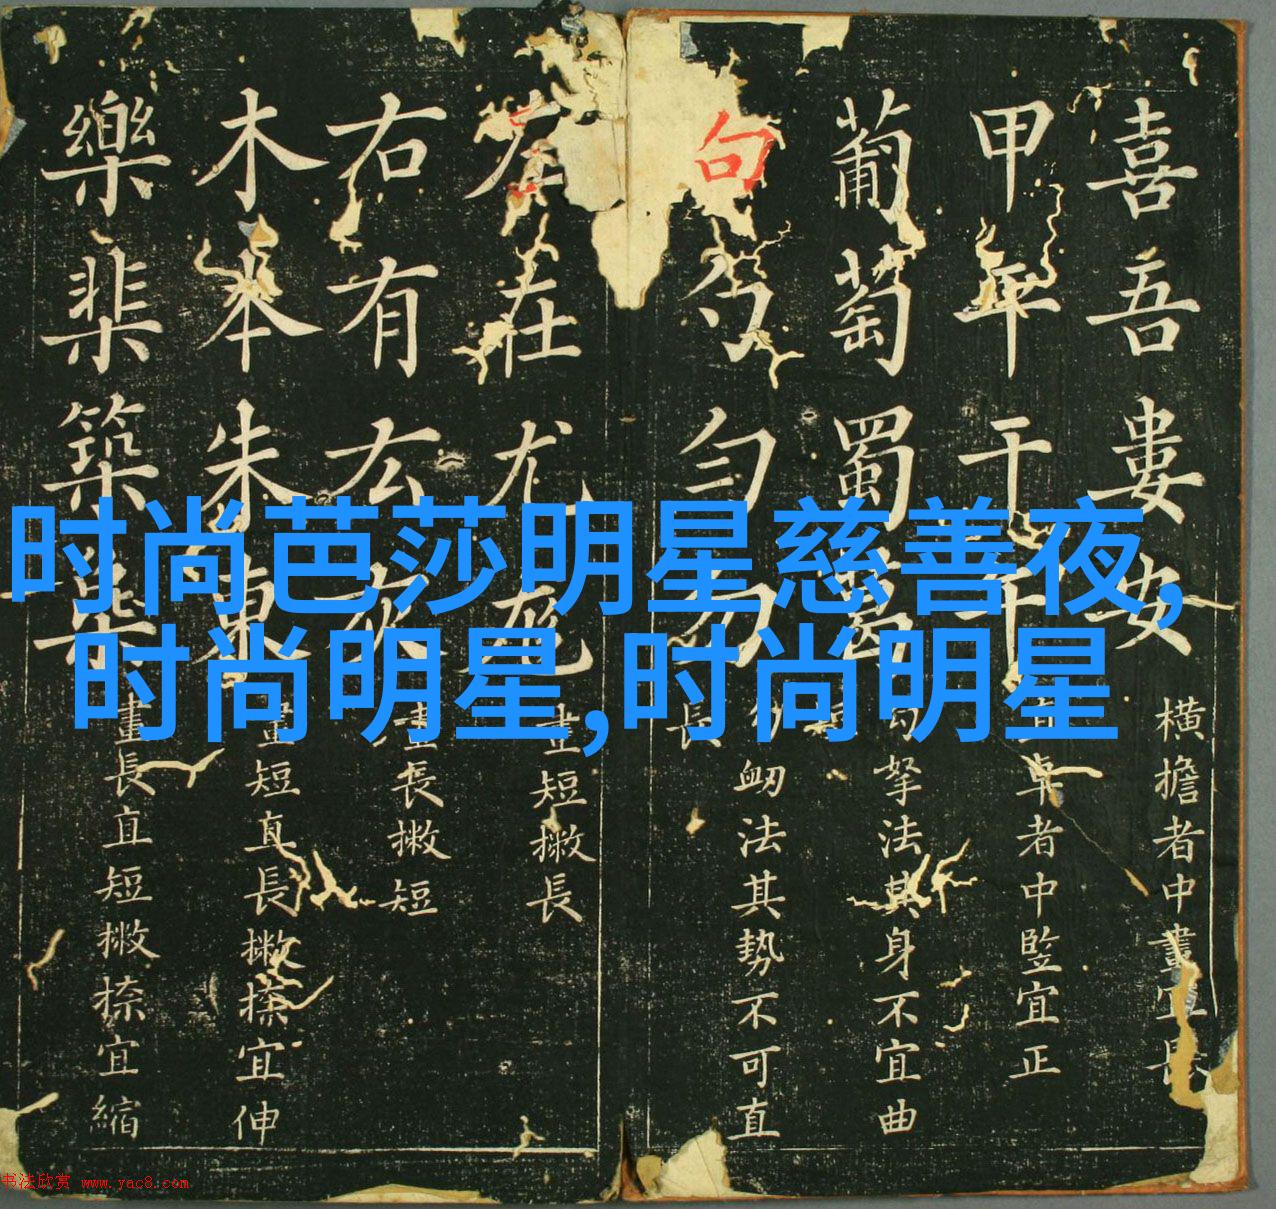 喜吾婁安
橫擔者中畫宜長
甲年干午
卓者中竪宜正
葡萄蜀葛
勾拏法其身不宜曲
句勺勻勿
勾衂法其勢不可直
左在尤尨
畫短撇長
右有厷灰
畫長撇短
木本朱東
畫短直長撇捺宜伸
樂棐築葉
畫長直短撇捺宜縮
时尚芭莎明星慈善夜,
时尚明星,时尚明星
书法欣赏 www.yac8.com